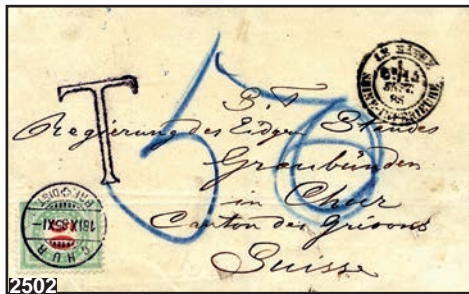 LE HAVRE
SEINE-INFERIEURE
SEPT.
88
T
50
Regierung des Eidgen Standes
Graubünden
in Chur
Canton des Grisons
Suisse
CHUR
2502